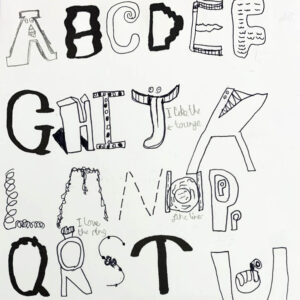 A B C D E F
G H I J K
I like the
tounge
L M N O P
I love
the ring
Q R S T U